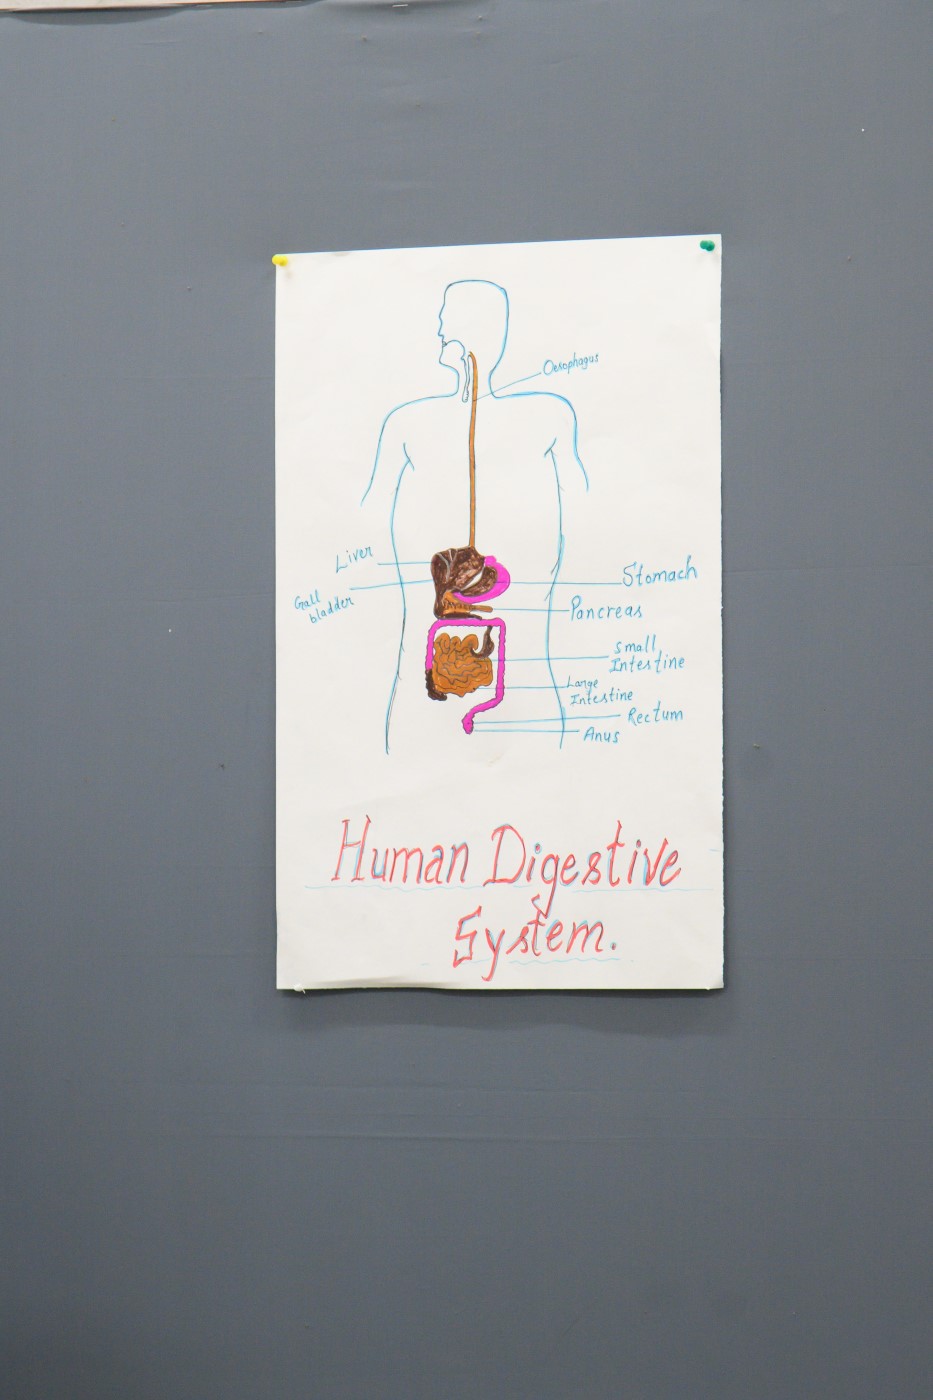 Oesophagus
Liver
Gall
bladder
Stomach
Pancreas
Small
Intestine
Large
Intestine
Rectum
Anus
Human Digestive
System.